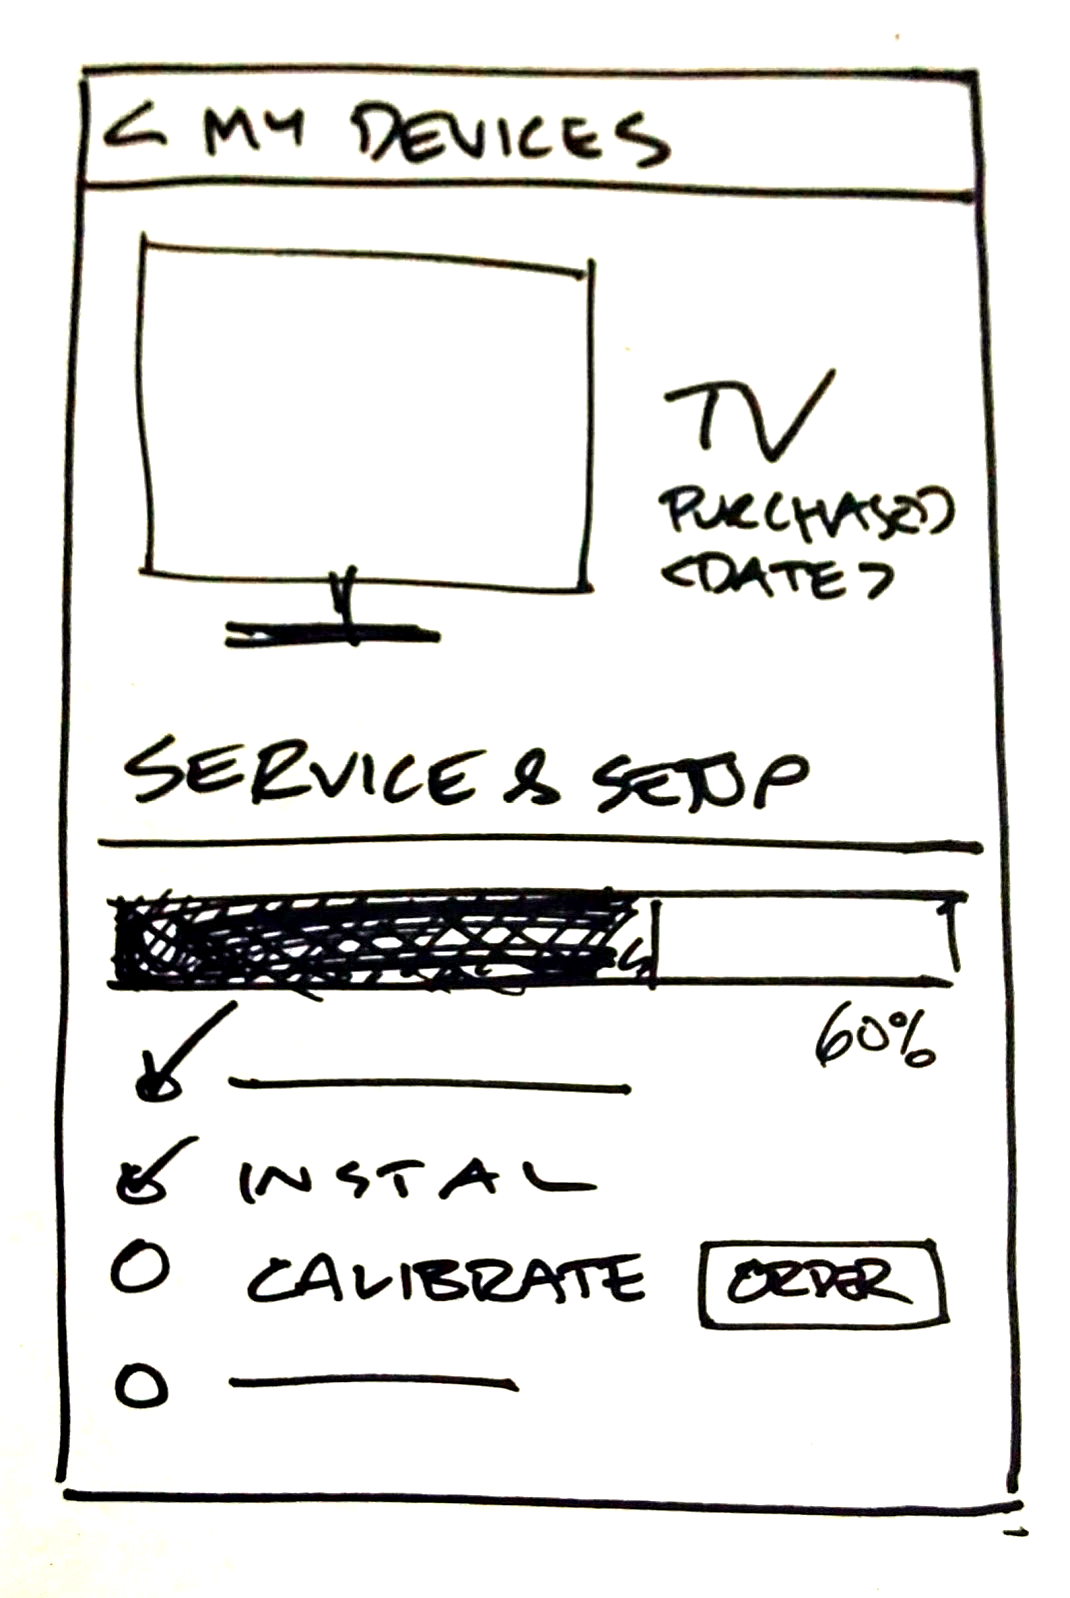 < MY DEVICES
TV
PURCHASED
<DATE>
SERVICE & SETUP
60%
INSTAL
CALIBRATE ORDER